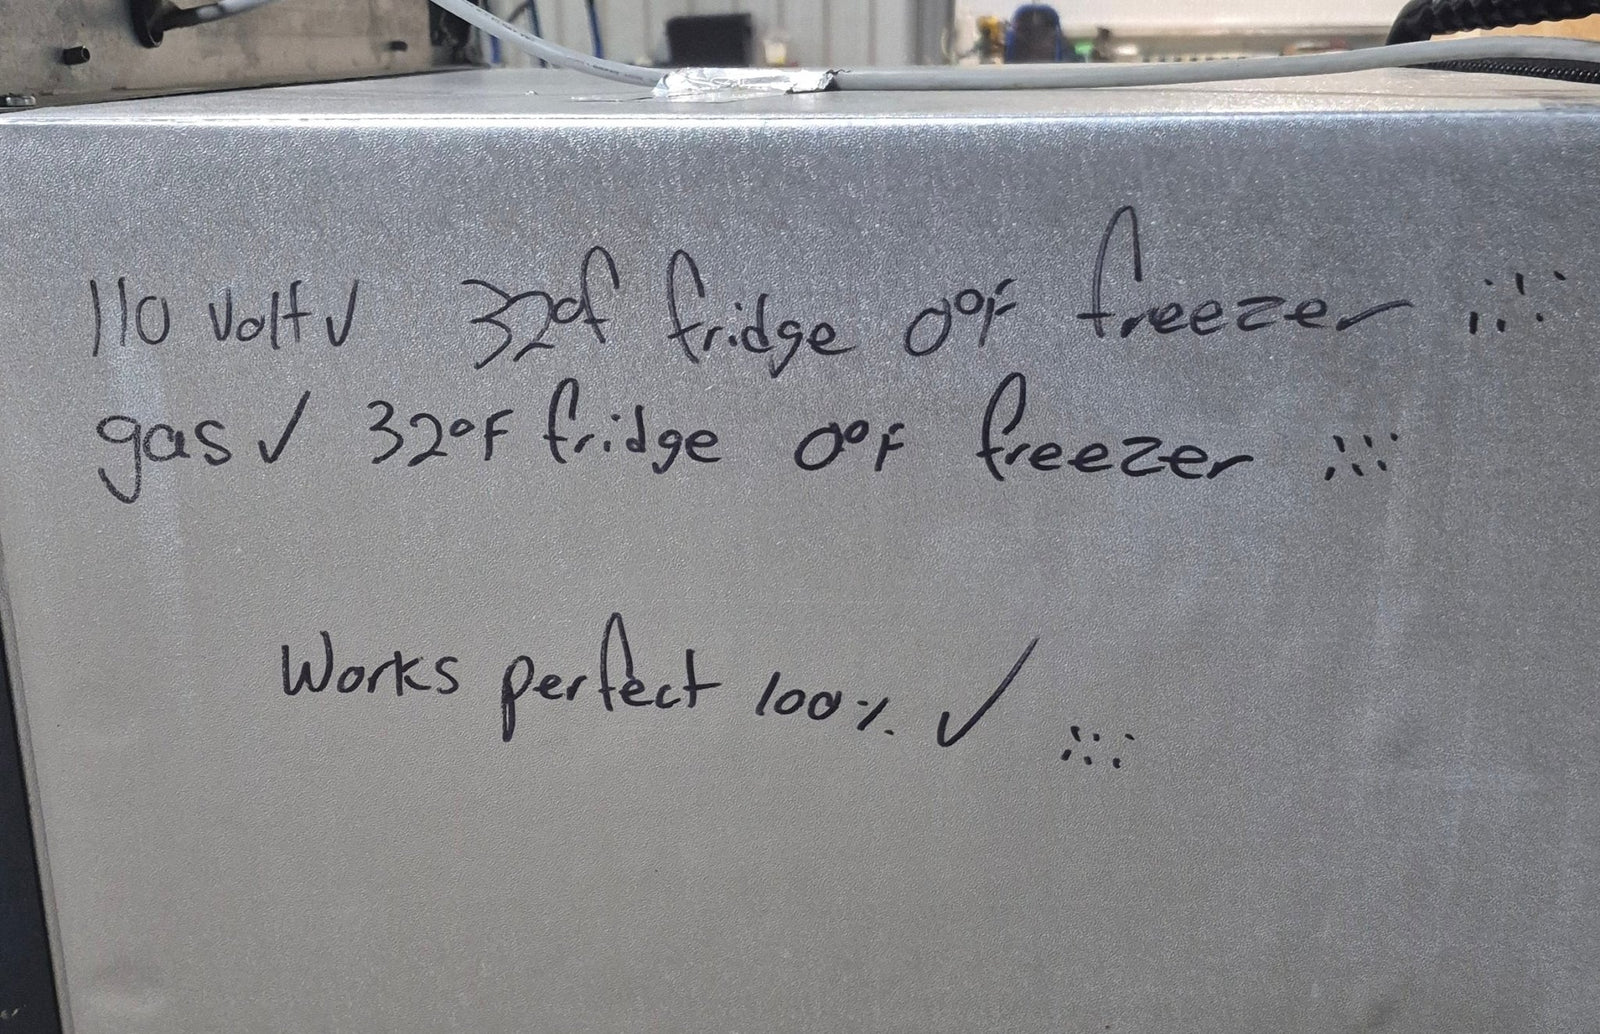 110 volt ✓ 32°f fridge 0°F freezer
gas ✓ 32°F fridge 0°F freezer
Works perfect 100% ✓